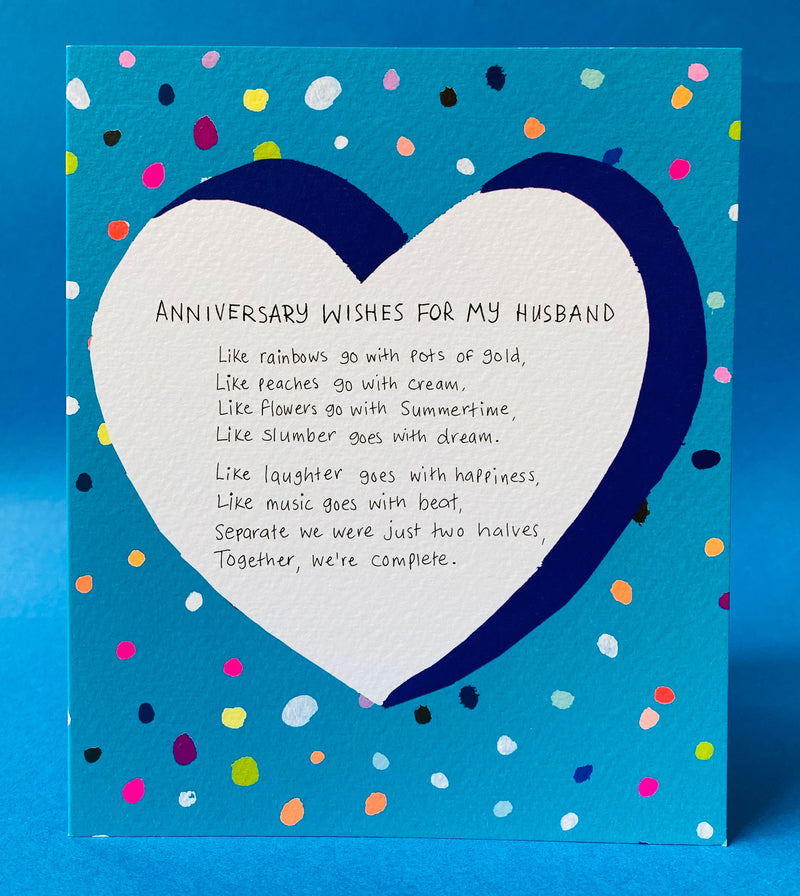 ANNIVERSARY WISHES FOR MY HUSBAND
Like rainbows go with pots of gold,
Like peaches go with cream,
Like flowers go with Summertime,
Like slumber goes with dream.
Like laughter goes with happiness,
Like music goes with beat,
Separate we were just two halves,
Together, we're complete.